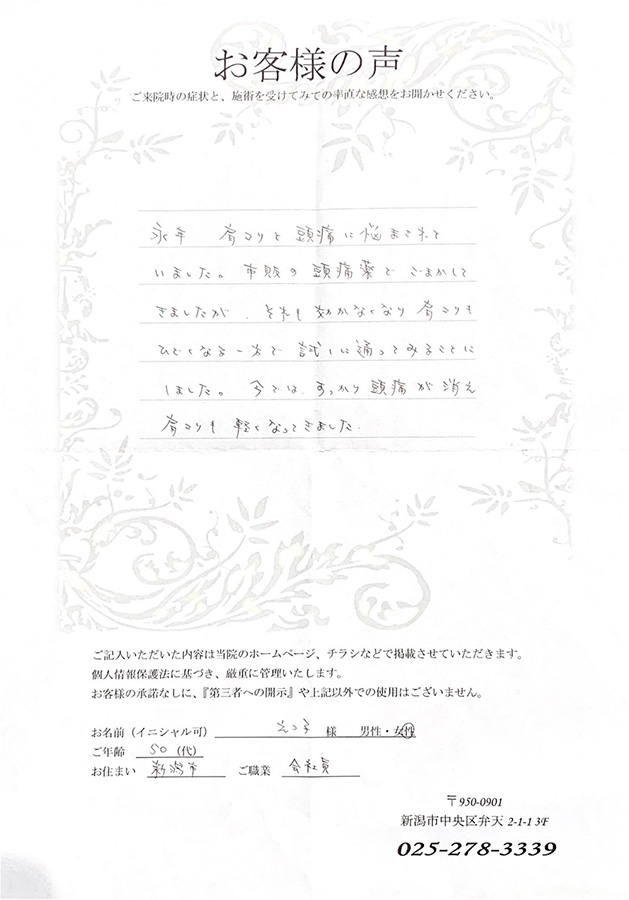 お客様の声
ご来院時の症状と、施術を受けてみての率直な感想をお聞かせください。
永年 肩コリと頭痛に悩まされて
いました。市販の頭痛薬でごまかして
きましたが、それも効かなくなり肩コリも
ひどくなる一方で試しに通ってみることに
しました。今では、すっかり頭痛が消え
肩コリも軽くなってきました。
ご記入いただいた内容は当院のホームページ、チラシなどで掲載させていただきます。
個人情報保護法に基づき、厳重に管理いたします。
お客様の承諾なしに、『第三者への開示』や上記以外での使用はございません。
お名前（イニシャル可） 様 男性・女性
ご年齢 50（代）
お住まい 新潟市 ご職業 会社員
〒950-0901
新潟市中央区弁天 2-1-1 3F
025-278-3339